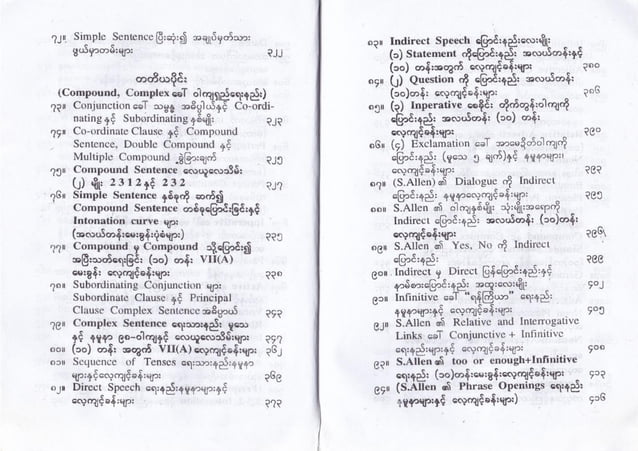 ၇၂။ Simple Sentence ပြီးဆုံး၍ အချုပ်မှတ်သား
ဖွယ်မှာတမ်းများ ၃၂၂
တတိယပိုင်း
(Compound, Complex ခေါ် ဝါကျရှည်ရေးနည်း)
၇၃။ Conjunction ခေါ် သမ္ဗန္ဓ အဓိပ္ပါယ်နှင့် Co-ordi-
nating နှင့် Subordinating နှစ်မျိုး ၃၂၃
၇၄။ Co-ordinate Clause နှင့် Compound
Sentence, Double Compound နှင့်
Multiple Compound ခွဲခြားချက် ၃၂၅
၇၅။ Compound Sentence လေ့ယူလေသိမ်း
(၂) မျိုး 2 3 1 2 နှင့် 2 3 2 ၃၂၇
၇၆။ Simple Sentence နှစ်ခုကို ဆက်၍
Compound Sentence တစ်ခုပြောင်းခြင်းနှင့်
Intonation curve များ
(အလယ်တန်းမေးခွန်းပုံစံများ) ၃၃၅
၇၇။ Compound မှ Compound သို့ပြောင်း၍
အပြီးသတ်ရေးခြင်း (၁၀) တန်း VII(A)
မေးခွန်း လေ့ကျင့်ခန်းများ ၃၃၈
၇၈။ Subordinating Conjunction များ
Subordinate Clause နှင့် Principal
Clause Complex Sentence အဓိပ္ပာယ် ၃၄၃
၇၉။ Complex Sentence ရေးသားနည်း မူသေ
နှင့် နမူနာ ၉၈-ဝါကျနှင့် လေယူလေသိမ်းများ ၃၄၇
၈၀။ (၁၀) တန်း အတွက် VII(A) လေ့ကျင့်ခန်းများ ၃၆၂
၈၁။ Sequence of Tenses ရေးသားနည်းနမူနာ
များနှင့်လေ့ကျင့်ခန်းများ ၃၆၉
၈၂။ Direct Speech ရေးနည်းနမူနာများနှင့်
လေ့ကျင့်ခန်းများ ၃၇၃
၈၃။ Indirect Speech ပြောင်းနည်းလေးမျိုး
(၁) Statement ကိုပြောင်းနည်း အလယ်တန်းနှင့်
(၁၀) တန်းအတွက် လေ့ကျင့်ခန်းများ ၃၈၀
၈၄။ (၂) Question ကို ပြောင်းနည်း အလယ်တန်း
(၁၀)တန်း လေ့ကျင့်ခန်းများ ၃၈၆
၈၅။ (၃) Inperative စေခိုင်း တိုက်တွန်းဝါကျကို
ပြောင်းနည်း အလယ်တန်း (၁၀) တန်း
လေ့ကျင့်ခန်းများ ၃၉၀
၈၆။ (၄) Exclamation ခေါ် အာမေဍိတ်ဝါကျကို
ပြောင်းနည်း (မူသေ ၅ ချက်)နှင့် နမူနာများ၊
လေ့ကျင့်ခန်းများ ၃၉၃
၈၇။ (S.Allen) ၏ Dialogue ကို Indirect
ပြောင်းနည်း နမူနာလေ့ကျင့်ခန်းများ ၃၉၅
၈၈။ S.Allen ၏ ဝါကျနှစ်မျိုး သုံးမျိုးအရောကို
Indirect ပြောင်းနည်း အလယ်တန်း (၁၀)တန်း
လေ့ကျင့်ခန်းများ ၃၉၆
၈၉။ S.Allen ၏ Yes, No ကို Indirect
ပြောင်းနည်း ၃၉၉
၉၀။ Indirect မှ Direct ပြန်ပြောင်းနည်းနှင့်
နာမ်စားပြောင်းနည်း အထူးလေးမျိုး ၄၀၂
၉၁။ Infinitive ခေါ် "ရန်ကြိယာ" ရေးနည်း
နမူနာများနှင့် လေ့ကျင့်ခန်းများ ၄၀၅
၉၂။ S.Allen ၏ Relative and Interrogative
Links ခေါ် Conjunctive + Infinitive
ရေးနည်းများနှင့် လေ့ကျင့်ခန်းများ ၄၀၈
၉၃။ S.Allen ၏ too or enough+Infinitive
ရေးနည်း (၁၀)တန်းမေးခွန်းလေ့ကျင့်ခန်းများ ၄၁၃
၉၄။ (S.Allen ၏ Phrase Openings ရေးနည်း
နမူနာများနှင့် လေ့ကျင့်ခန်းများ) ၄၁၆